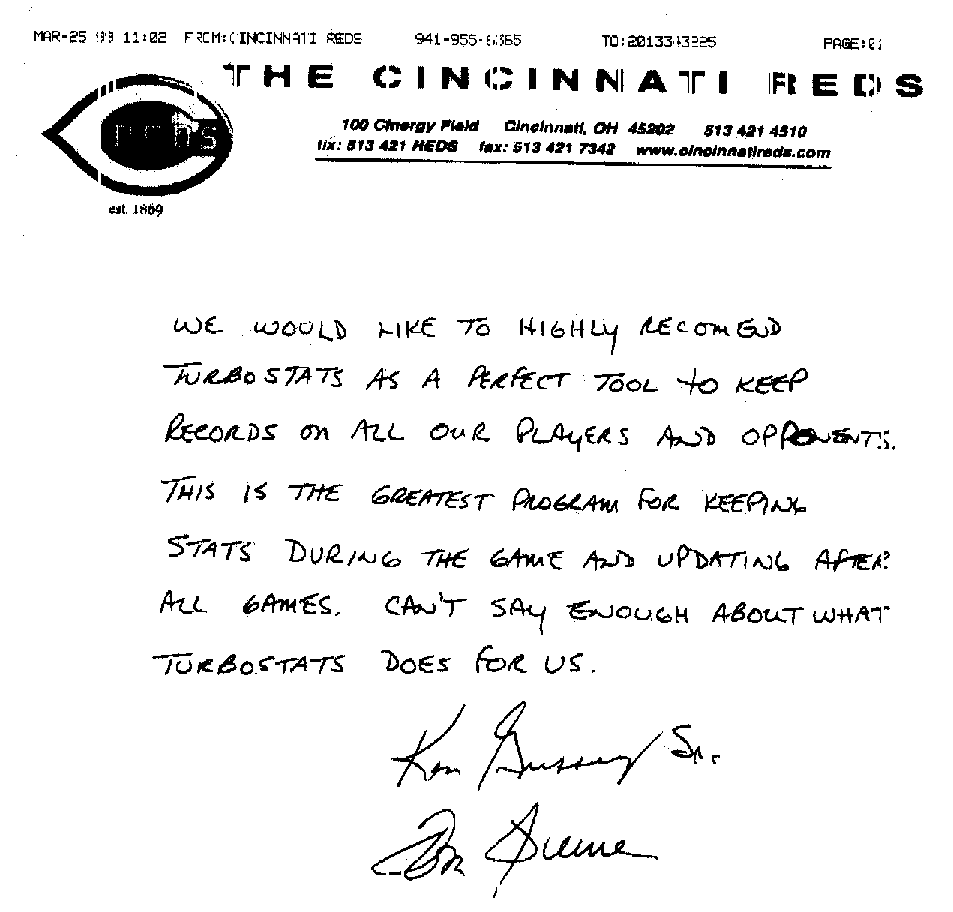 MAR-25 99 11:02 FROM:CINCINNATI REDS 941-955-6365 TO:2013343225 PAGE:01
THE CINCINNATI REDS
100 Cinergy Field Cincinnati, OH 45202 513 421 4510
tix: 513 421 REDS fax: 513 421 7342 www.cincinnatireds.com
REDS
est. 1869
WE WOULD LIKE TO HIGHLY RECOMEND
TURBOSTATS AS A PERFECT TOOL TO KEEP
RECORDS ON ALL OUR PLAYERS AND OPPONENTS.
THIS IS THE GREATEST PROGRAM FOR KEEPING
STATS DURING THE GAME AND UPDATING AFTER
ALL GAMES. CAN'T SAY ENOUGH ABOUT WHAT
TURBOSTATS DOES FOR US.
Ken Sr.